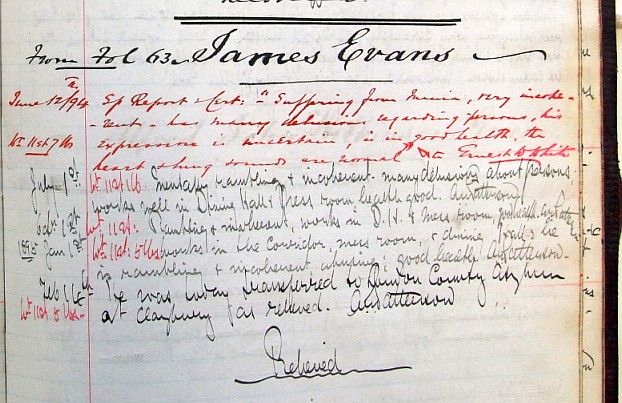 From Fol 63. James Evans
June 12th/94 Sp Report & Cert: "Suffering from Mania, very incohe-
rent & has many delusions regarding persons, his
Wt 11st 7 lbs expression is uncertain, is in good health, the
heart & lung sounds are normal" Ernest W White
July 1st Wt 11st Mentally rambling & incoherent. many delusions about persons.
works well in Dining Hall & Mess room health good. AWPatterson
Octr 1st Wt 11st. Rambling & incoherent, works in D.H. & mess room, good health
1895 Jan 1st Wt 11st. 5 lbs works in the Corridor, mess room, & dining Hall: he
is rambling & incoherent abusive; good health AWPatterson
Feb 16th He was today transferred to London County Asylum
Wt 11st 5 lbs at Claybury far relieved. AWPatterson
Relieved